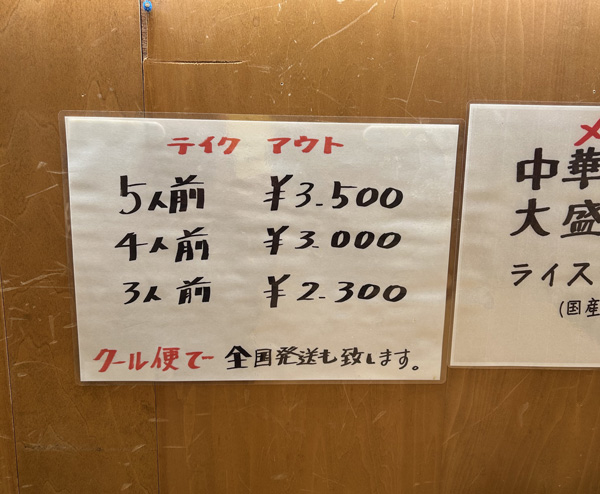 テイク アウト
5人前 ¥3.500
4人前 ¥3.000
3人前 ¥2.300
クール便で 全国発送も致します。
メ
中華
大盛
ライス
(国産